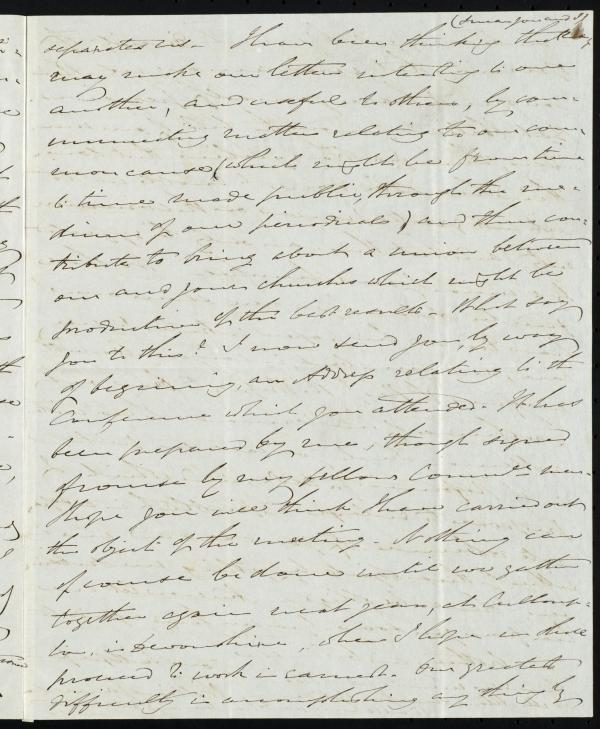 (I mean you and I)
separates us - I have been thinking that we
may make our letters interesting to one
another, and useful to others, by com-
municating matter relating to our com-
mon cause (which might be from time
to time made public, through the me-
dium of our periodicals) and thus con-
tribute to bring about a union between
our and your churches which might be
productive of the best results - What say
you to this? I now send you, by way
of beginning, an Address relating to the
Conference which you attended. It has
been prepared by me, though signed
of course by my fellow Committee men -
I hope you will think I have carried out
the object of the meeting - Nothing can
of course be done until we gather
together again next year, at Cullomp-
ton, in Devonshire, when I hope we shall
proceed to work in earnest. Our greatest
difficulty in accomplishing any thing by